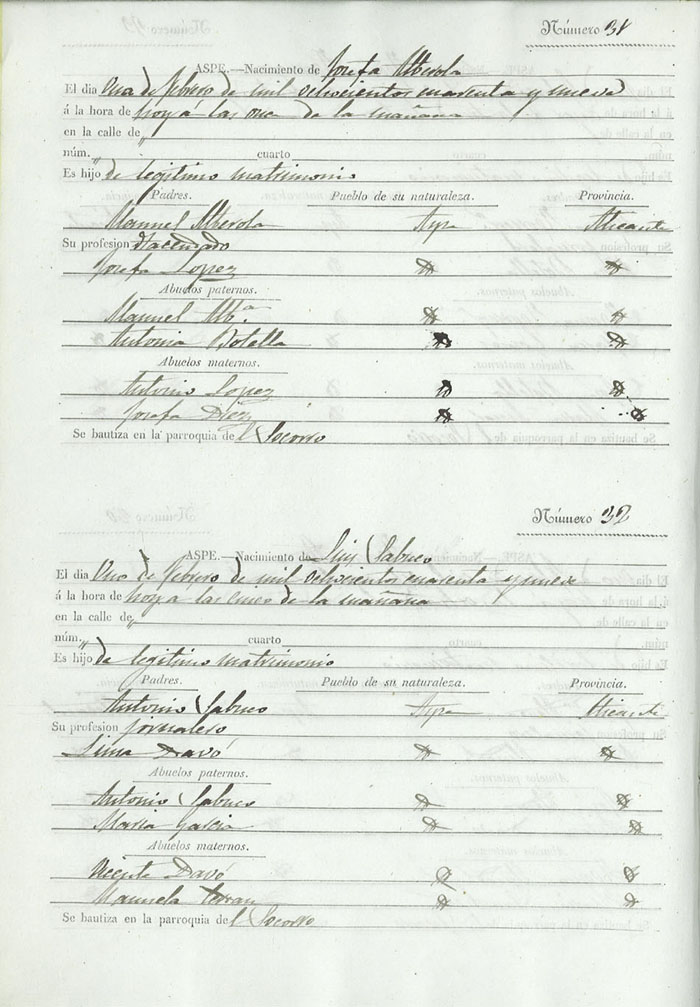 Número 31
ASPE.—Nacimiento de Josefa Alberola
El dia Uno de febrero de mil ochocientos cuarenta y nueve
á la hora de hoy á las once de la mañana
en la calle de „
núm. „ cuarto
Es hijo de legitimo matrimonio
Padres. Pueblo de su naturaleza. Provincia.
Manuel Alberola Aspe Alicante
Su profesion Hacendado
Josefa Lopez
Abuelos paternos.
Manuel Alb.ª
Antonia Botella
Abuelos maternos.
Antonio Lopez
Josefa Diez
Se bautiza en la parroquia de l Socorro
Número 32
ASPE.—Nacimiento de Luis Sabuco
El dia Uno de febrero de mil ochocientos cuarenta y nueve
á la hora de hoy a las cinco de la mañana
en la calle de „
núm. „ cuarto
Es hijo de legitimo matrimonio
Padres. Pueblo de su naturaleza. Provincia.
Antonio Sabuco Aspe Alicante
Su profesion jornalero
Davó
Abuelos paternos.
Antonio Sabuco
Maria Garcia
Abuelos maternos.
Vicente Davó
Manuela
Se bautiza en la parroquia de l Socorro